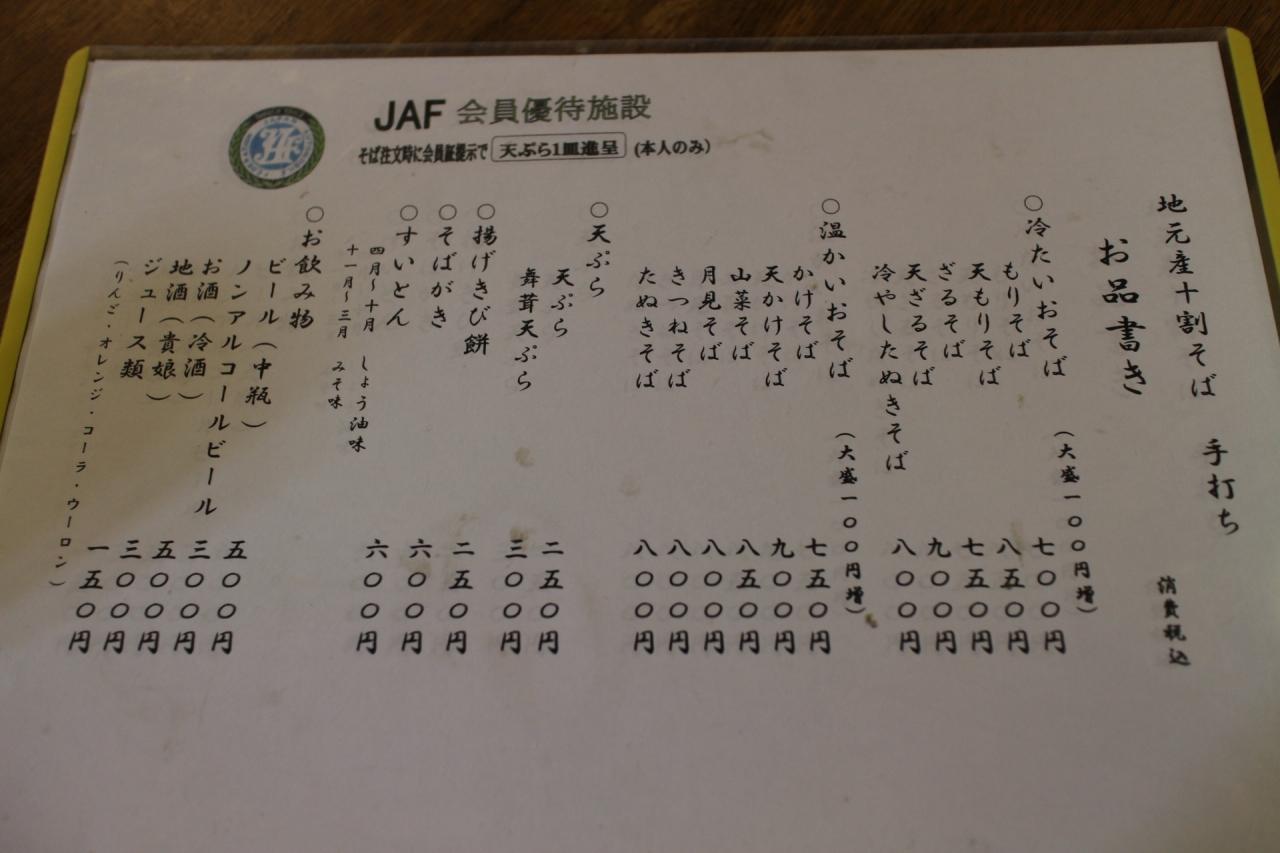 JAF 会員優待施設
そば注文時に会員証提示で 天ぷら1皿進呈 (本人のみ)
地元産十割そば 手打ち
消費税込
お品書き
○冷たいおそば （大盛一〇〇円増）
もりそば 七〇〇円
天もりそば 八五〇円
ざるそば 七五〇円
天ざるそば 九〇〇円
冷やしたぬきそば 八〇〇円
○温かいおそば （大盛一〇〇円増）
かけそば 七五〇円
天かけそば 九〇〇円
山菜そば 八五〇円
月見そば 八〇〇円
きつねそば 八〇〇円
たぬきそば 八〇〇円
○天ぷら
天ぷら 二五〇円
舞茸天ぷら 三〇〇円
○揚げきび餅 二五〇円
○そばがき 六〇〇円
○すいとん 六〇〇円
四月～十月 しょう油味
十一月～三月 みそ味
○お飲み物
ビール（中瓶） 五〇〇円
ノンアルコールビール 三〇〇円
お酒（冷酒） 五〇〇円
地酒（貴娘） 三〇〇円
ジュース類 一五〇円
（りんご・オレンジ・コーラ・ウーロン）